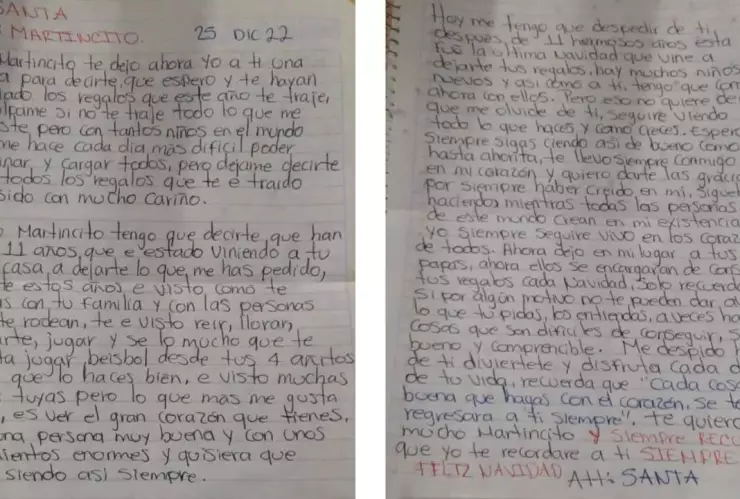 SANTA
MARTINCITO. 25 DIC 22
Martincito te dejo ahora yo a ti una
a para decirte, que espero y te hayan
ado los regalos que este año te traje,
lpame si no te traje todo lo que me
ste, pero con tantos niños en el mundo
me hace cada dia, mas dificil poder
inar y cargar todos, pero dejame decirte
todos los regalos que te e traido
sido con mucho cariño.
Martincito tengo que decirte, que han
11 años, que e estado viniendo a tu
casa, a dejarte lo que, me has pedido,
te estos años e visto como te
as con tu familia y con las personas
te rodean, te e visto reir, lloran,
rte, jugar y se lo mucho que te
ta jugar beisbol desde tus 4 añitos
que lo haces bien, e visto muchas
tuyas pero lo que mas me gusta
, es ver el gran corazón que tienes.
una persona muy buena y con unos
ientos enormes y quisiera que
siendo asi siempre.
Hoy me tengo que despedir de ti,
después de 11 hermosos años esta
fue la ultima Navidad que vine a
dejarte tus regalos, hay muchos niños
nuevos y asi como a ti, tengo que
ahora con ellos. Pero eso no quiere de
que me olvide de ti, seguire viendo
todo lo que haces y como creces. Espero
siempre sigas ciendo asi de bueno como
hasta ahorita, te llevo siempre conmigo
en mi corazón y quiero darte las gracia
por siempre haber creido en mi, sigue
haciendo, mientras todas las personas
de este mundo crean en mi existencia
Yo siempre seguire vivo en los coraz
de todos. Ahora dejo en mi lugar a tus
papas, ahora ellos se encargaran de
tus regalos cada Navidad, solo recuerda
si por algún motivo no te pueden dar
lo que tu pidas, los entiendas, a veces ha
cosas que son dificiles de conseguir, s
bueno y comprencible. Me despido
de ti diviertete y disfruta cada d
de tu vida, recuerda que "Cada cosa
buena que hagas con el corazón, se te
regresara a ti siempre". te quiero
mucho Martincito y siempre RECU
que yo te recordare a ti SIEMPRE
FELIZ NAVIDAD Att: SANTA